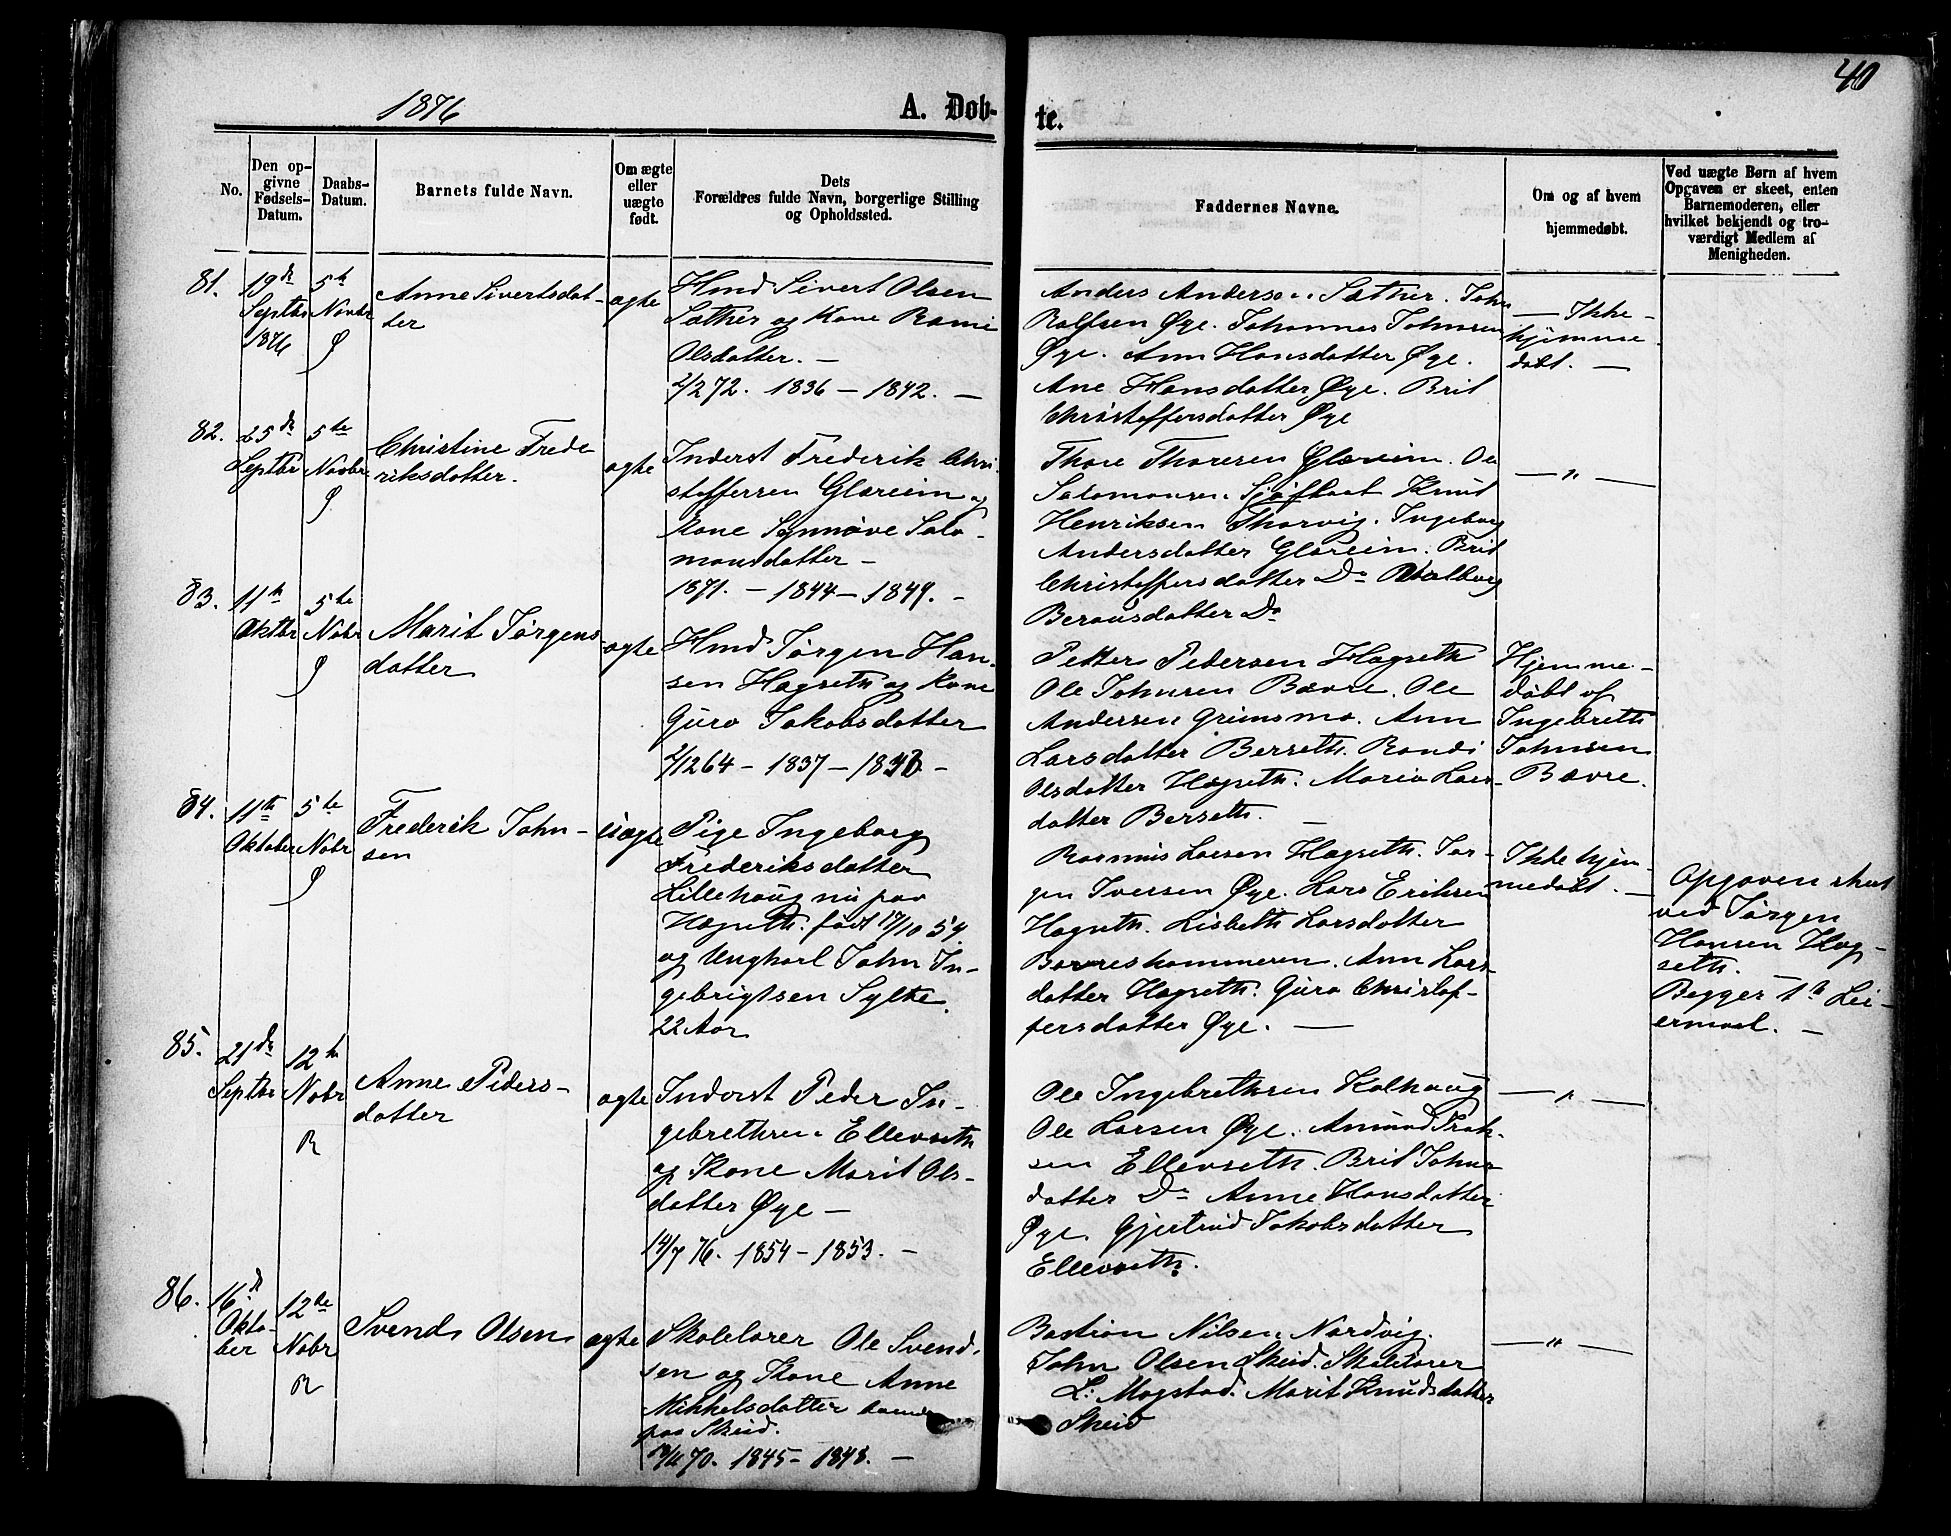 40
1876 A. Døb- te.
No.
Den op-
givne
Fødsels-
Datum.
Daabs-
Datum.
Barnets fulde Navn.
Om ægte
eller
uægte
født.
Dets
Forældres fulde Navn, borgerlige Stilling
og Opholdssted.
Faddernes Navne.
Om og af hvem
hjemmedøbt.
Ved uægte Børn af hvem
Opgaven er skeet, enten
Barnemoderen, eller
hvilket bekjendt og tro-
værdigt Medlem af
Menigheden.
81.
19de
Septbr
1876
5te
Novbr
Ø
Anne Sivertsdat-
ter
ægte
Hmd Sivert Olsen
Sæther og Kone
Olsdatter. —
2/2 72. 1836 — 1842. —
Anders Andersen Sæther. John
Rolfsen Øye. Johannes Johnsen
Øye. Ann Hansdatter Øye.
Ane Hansdatter Øye. Brit
Christoffersdatter Øye
— Ikke
hjemme
døbt. —
82.
25de
Septbr
5te
Novbr
Ø
Christine Frede
riksdatter.
ægte
Inderst Frederik Chri
stoffersen Glæreim og
Kone Synnøve Salo-
monsdatter —
1871. — 1844 — 1849. —
Thore Thoresen Glæreim. Ole
Salomonsen Sjøflaat Knut
Henriksen Thorvig. Ingeborg
Andersdatter Glæreim. Brit
Christoffersdatter Do
Berausdatter Do
— " —
83.
11te
Oktbr
5te
Nobr
Ø
Marit Jørgens
datter
ægte
Hmd Jørgen Han-
sen Hægseth og Kone
Guro Jakobsdatter
2/12 64 — 1837 —
Petter Pedersen Hægseth
Ole Johnsen Bævre. Ole
Andersen Grimsmo. Ann
Larsdatter Berseth. Randi
Olsdatter Hægseth. Maria Lars-
datter Berseth. —
Hjemme-
døbt af
Ingebreth
Johnsen
Bævre.
84.
11te
Oktober
5te
Nobr
Ø
Frederik John-
sen
uægte
Pige Ingeborg
Frederiksdatter
Lillehaug nu paa
Hægseth. født 17/10 54
og Ungkarl John In-
gebrigtsen Sylte.
22 Aar
Rasmus Larsen Hægseth. Jør-
gen Iversen Øye. Lars Eriksen
Hægseth. Lisbeth Larsdatter
Bævreskammeren. Ann Lars
datter Hægseth. Guro Christof-
fersdatter Øye. —
Ikke hjem
medøbt. —
Opgaven skeet
ved Jørgen
Hansen Hæg-
seth.
Begges 1te Lei-
ermaal. —
85.
21de
Septbr
12te
Nobr
R
Anne Peders-
datter
ægte
Inderst Peder In-
gebrethsen Ellevseth
og Kone Marit Ols-
datter Øye —
14/7 76. 1854 — 1853. —
Ole Ingebrethsen Kalhaug
Ole Larsen Øye. Amund
sen Ellevseth. Brit Johns
datter Do Anne Hansdatter
Øye. Gjertrud Jakobsdatter
Ellevseth.
— " —
86.
16de
Okto-
ber
12te
Nobr
R
Svend Olsen
ægte
Skolelærer Ole Svend-
sen og Kone Anne
Mikkelsdatter
paa Skeid.
70. 1845 — 1843. —
Bastian Nilsen Nordvig.
John Olsen Skeid. Skolelærer
L. Mogstad. Marit Knudsdatter
Skeid
— " —